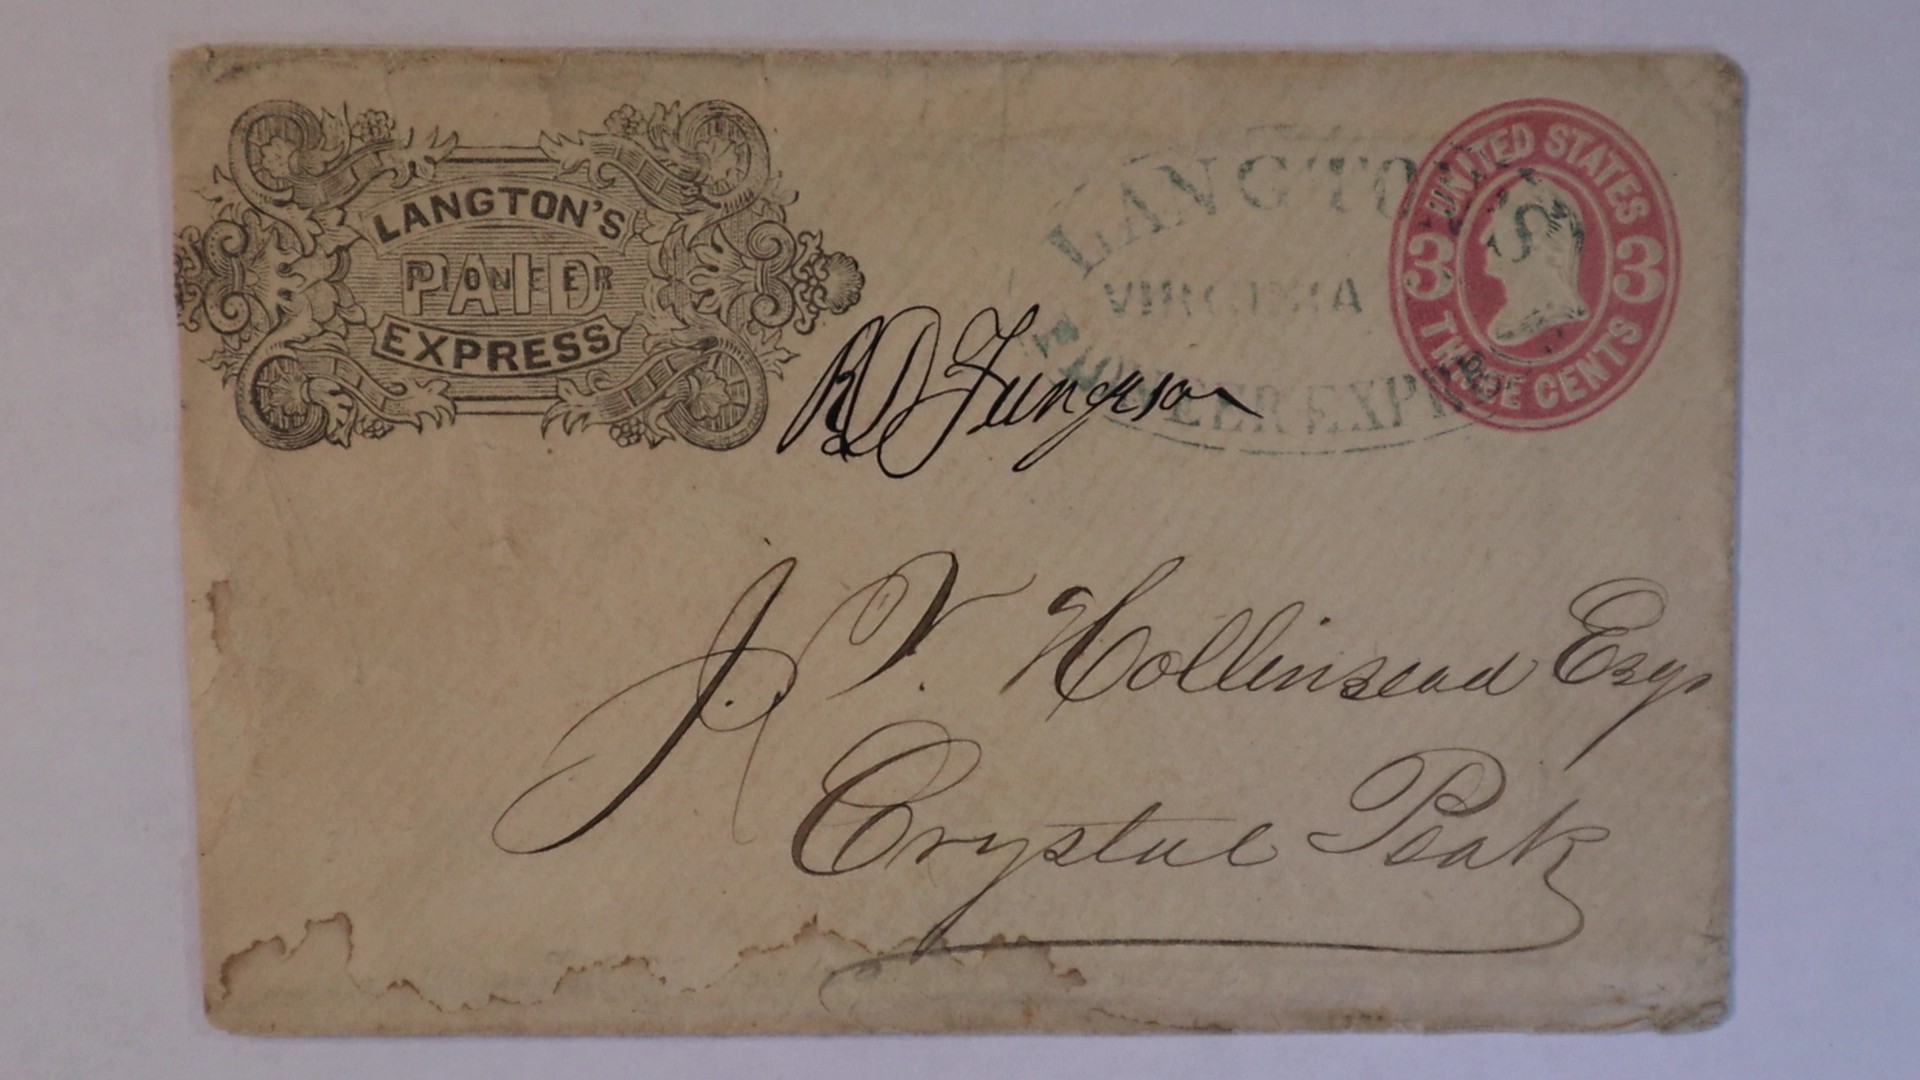 LANGTON'S
PIONEER
PAID
EXPRESS
LANGTON'S
VIRGINIA
PIONEER EXPRESS
UNITED STATES
3 3
THREE CENTS
RD Furgeson
J. V. Hollinsead Esqr
Crystal Peak